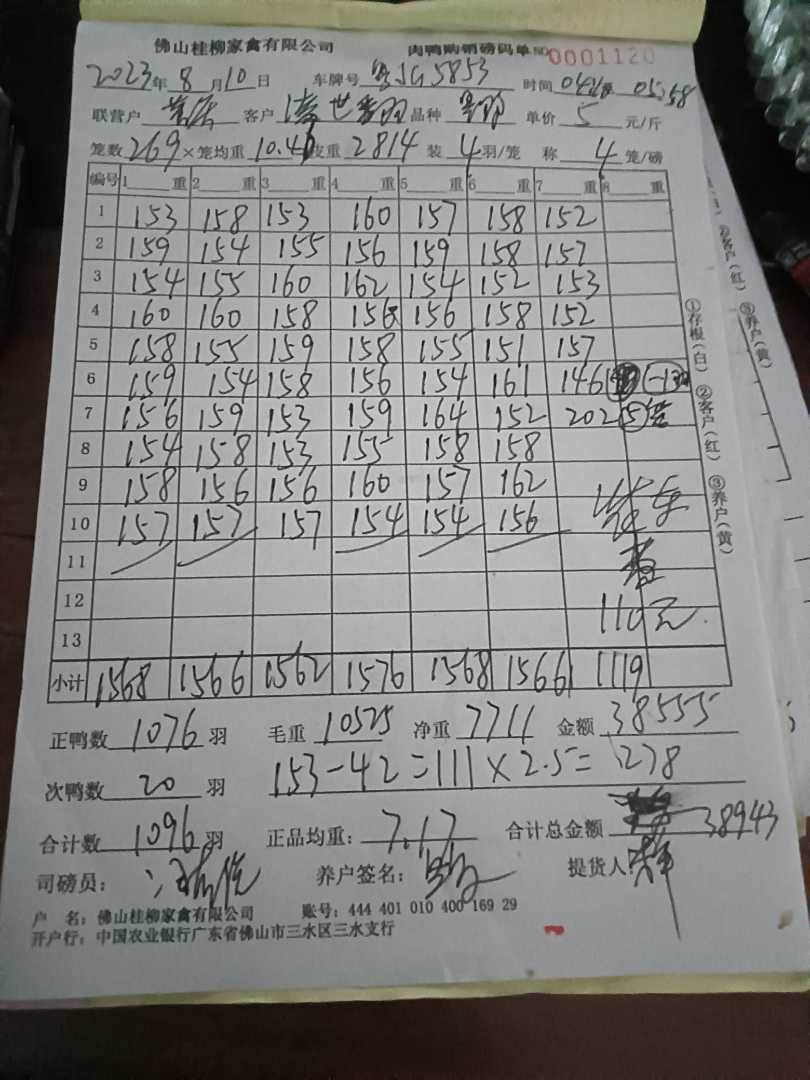 佛山桂柳家禽有限公司 肉鸭购销磅码单 NO 0001120
2023年8月10日 车牌号 JG5853 时间 05:58
联营户 客户 世 品种 单价 5 元/斤
笼数 269×笼均重 10.46 皮重 2814 装 4 羽/笼 称 4 笼/磅
编号 1 重 2 重 3 重 4 重 5 重 6 重 7 重 8 重
1 153 158 153 160 157 158 152
2 159 154 155 156 159 158 157
3 154 155 160 162 154 152 153
4 160 160 158 158 156 158 152
5 158 155 159 158 155 151 157
6 159 154 158 156 154 161 146
7 156 159 153 159 164 152 202 5
8 154 158 153 155 158 158
9 158 156 156 160 157 162
10 157 157 157 154 154 156
11
12 110元
13
小计 1568 1566 1562 1576 1568 1566 1119
正鸭数 1076 羽 毛重 10525 净重 7711 金额 38555
次鸭数 20 羽 153-42=111×2.5=278
合计数 1096 羽 正品均重: 7.17 合计总金额 38943
司磅员: 养户签名: 提货人
户 名: 佛山桂柳家禽有限公司 账号: 444 401 010 400 169 29
开户行: 中国农业银行广东省佛山市三水区三水支行
①存根(白) ②客户(红) ③养户(黄)
②客户(红) ③养户(黄)